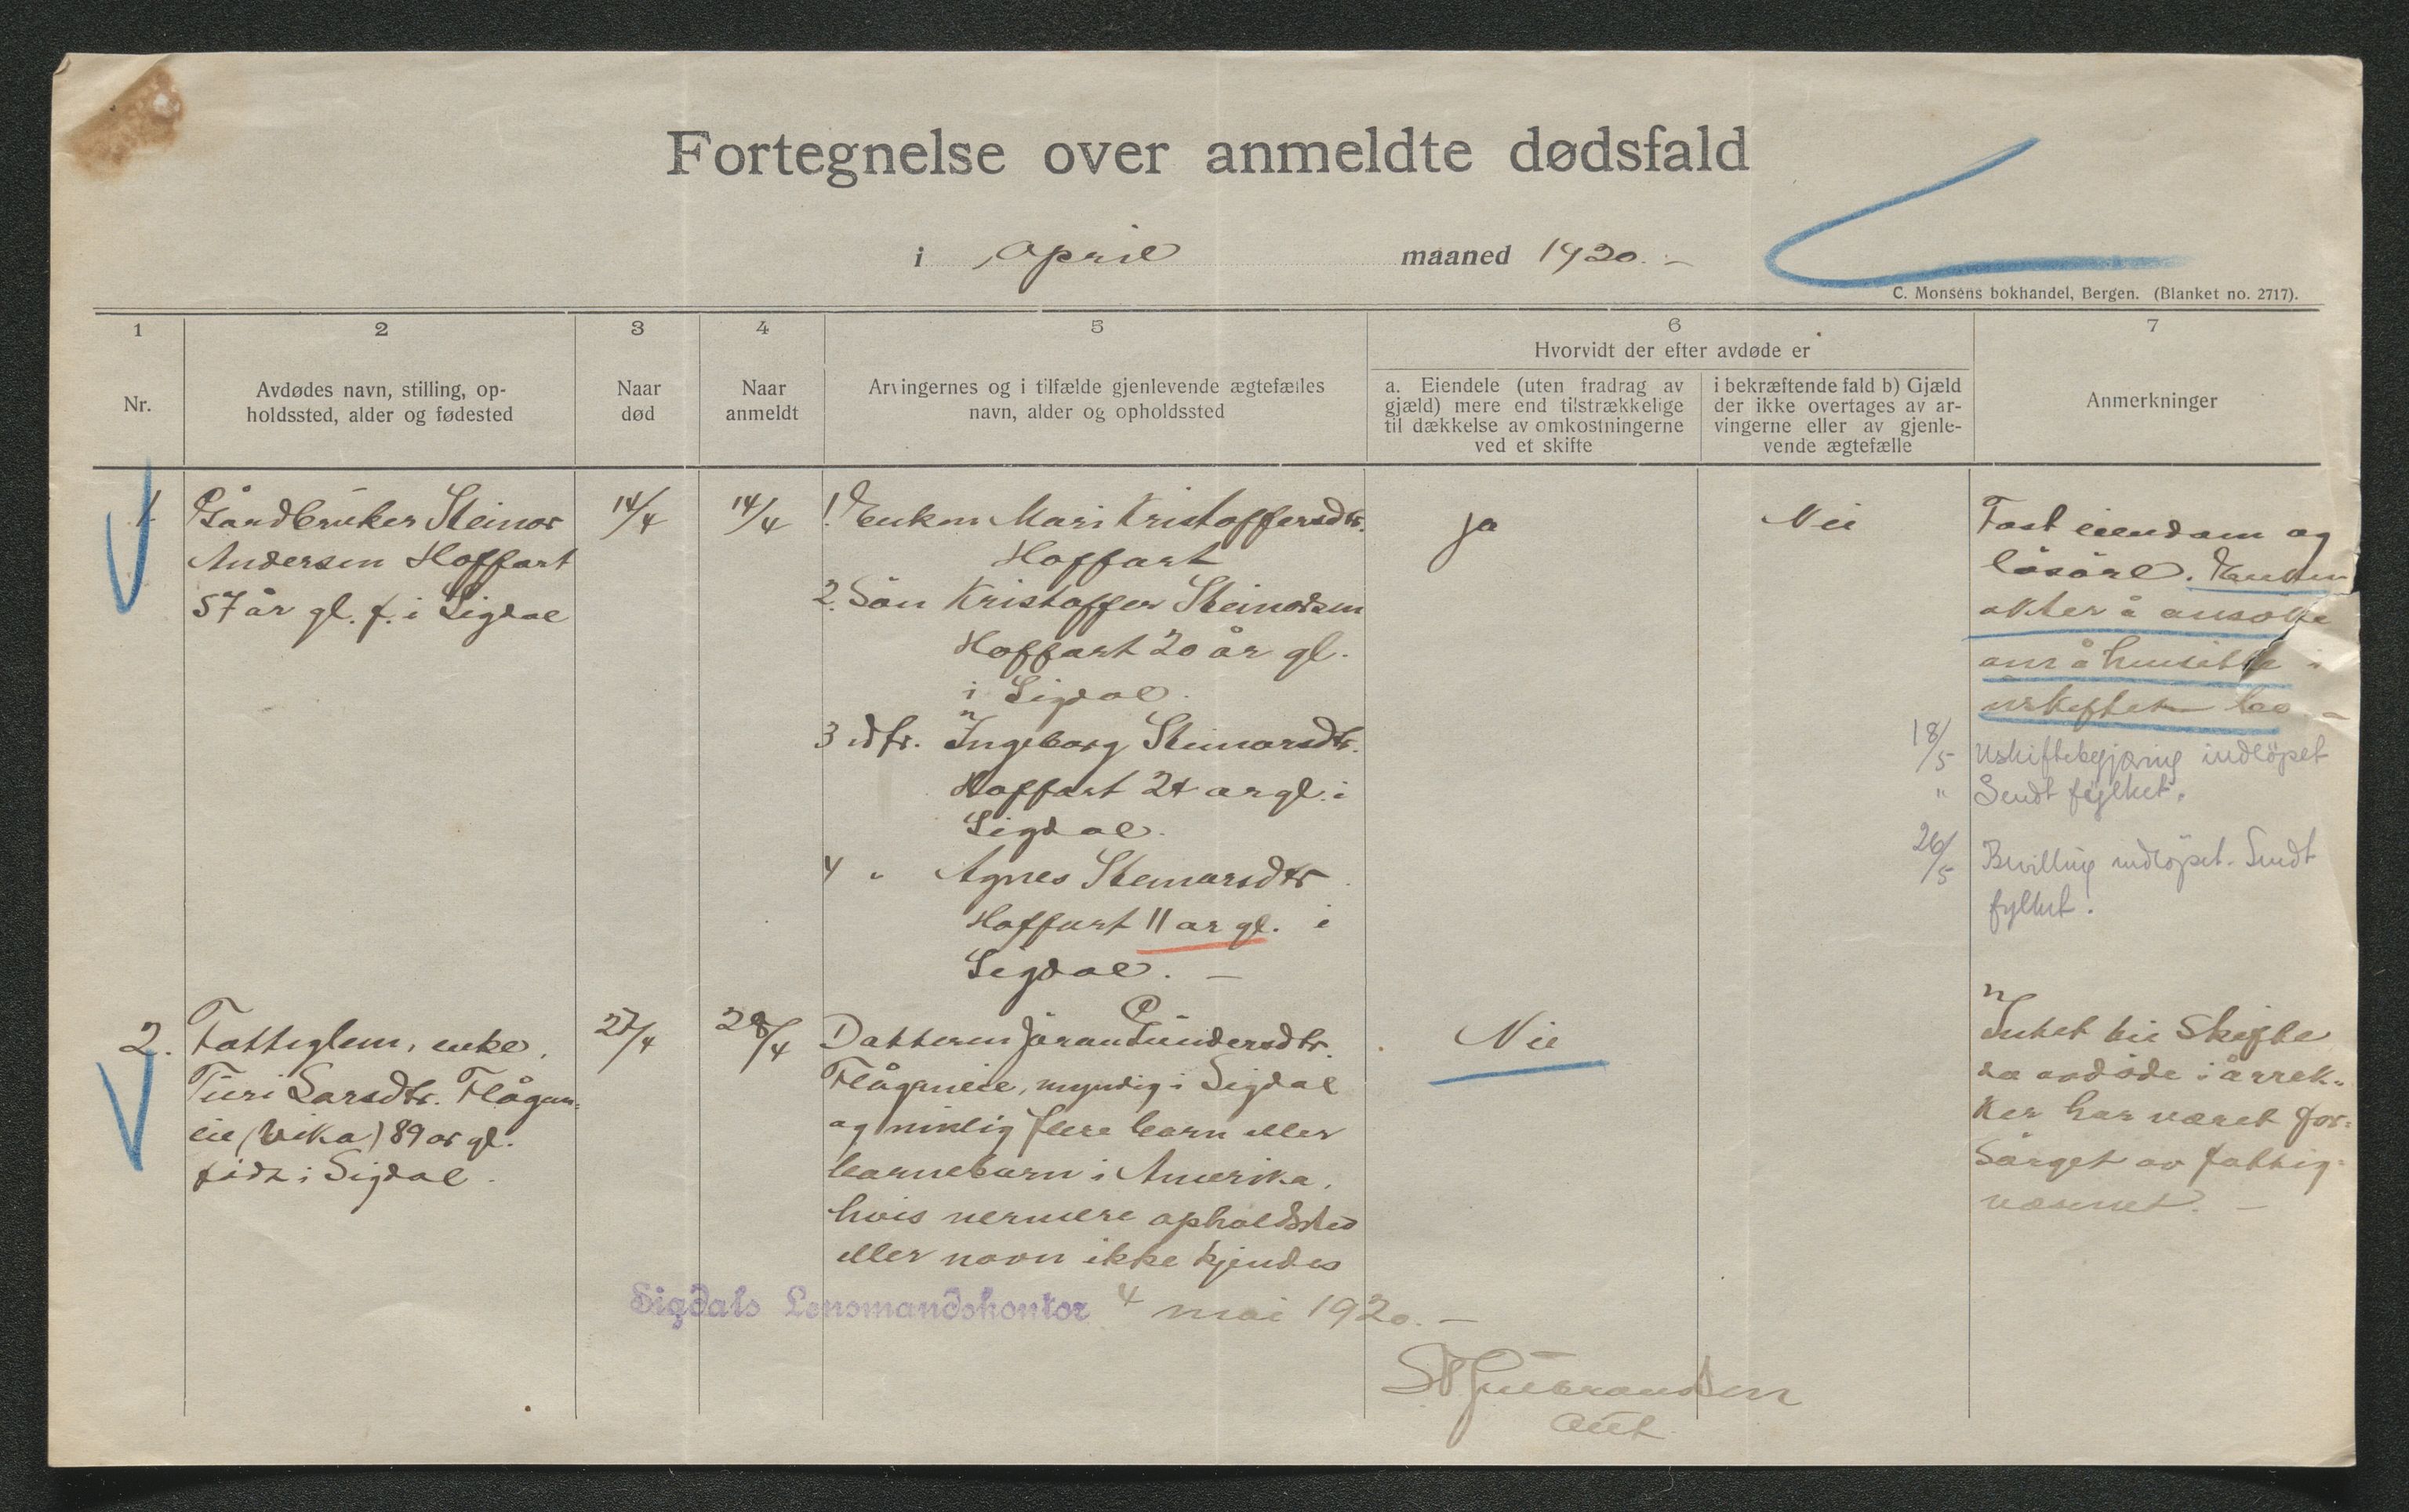 Fortegnelse over anmeldte dødsfald
i april maaned 1920. –
C. Monsens bokhandel, Bergen. (Blanket no. 2717).
1
2
3
4
5
6
7
Nr.
Avdødes navn, stilling, op-
holdssted, alder og fødested
Naar
død
Naar
anmeldt
Arvingernes og i tilfælde gjenlevende ægtefælles
navn, alder og opholdssted
Hvorvidt der efter avdøde er
a. Eiendele (uten fradrag av
gjæld) mere end tilstrækkelige
til dækkelse av omkostningerne
ved et skifte
i bekræftende fald b) Gjæld
der ikke overtages av ar-
vingerne eller av gjenle-
vende ægtefælle
Anmerkninger
1.
Gårdbruker Steinar
Andersen Hoffart
57 år gl. f. i Sigdal
14/4
14/4
1. Enken Mari Kristoffersdtr.
Hoffart
2. Sön Kristoffer Steinarsen
Hoffart 20 år gl.
i Sigdal.
3 dtr. Ingeborg Steinarsdtr.
Hoffart 24 år gl. i
Sigdal.
4 " Agnes Steinarsdtr
Hoffart 11 år gl. i
Sigdal. –
ja
Nei
Fast eiendom og
lösöre. Enken
akter å ansöke
om å hensitte i
uskiftet bo –
18/5 Uskiftebegjæring indlöpet
" Sendt fylket.
26/5 Bevilling indlöpet. Sendt
fylket.
2.
Fattiglem, enke,
Turi Larsdtr. Flågan-
eie (Vika) 89 år gl.
född i Sigdal.
27/4
28/4
Datteren Jöran Gundersdtr.
Flåganeie, myndig i Sigdal
og flere barn eller
barnebarn i Amerika,
hvis nermere opholdsted
eller navn ikke kjendes
Nei
Intet bli skifte
da avdöde i årræk-
ker har været for-
sörget av fattig-
væsenet. –
Sigdals Lensmandskontor 4 mai 1920. –
Gulbrandsen